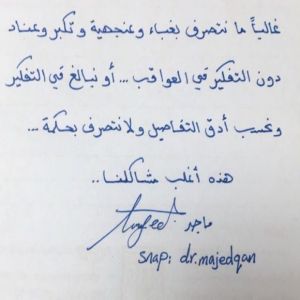 غالباً ما نتصرف بغباء وعنجهية وتكبر وعناد
دون التفكير في العواقب ... أو نبالغ في التفكير
ونحسب أدق التفاصيل ولا نتصرف بحكمة ...
هذه أغلب مشاكلنا ..
ماجد
snap: dr.majedqan